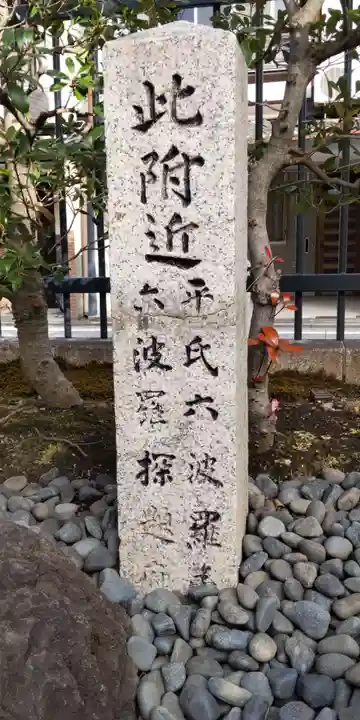 此附近
平氏六波羅
六波羅探題